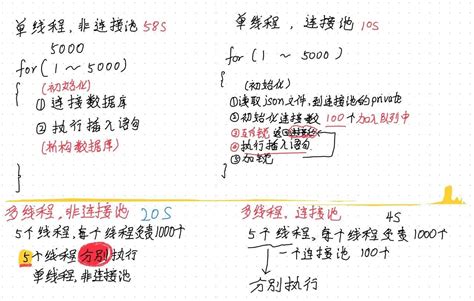 单线程，非连接池 58s
5000
for(1～5000)
{
(初始化)
①连接数据库
②执行插入语句
(析构数据库)
}
单线程，连接池 10s
for(1～5000)
{
(初始化)
①读取json文件,到连接池的private
②初始化连接数 100个加入到队列中
④执行插入语句
}
多线程,非连接池 20S
5个线程,每个线程负责1000个
5个线程 分别执行
单线程,非连接池
多线程,连接池 4S
5个线程,每个线程负责1000个
一个连接池 100个
分别执行